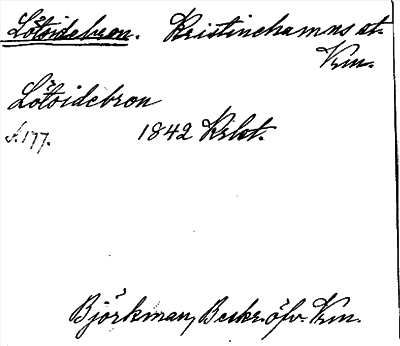 Lötsidebron. Kristinehamns st.
Vrm.
Lötsidebron
s. 177. 1842 Krlst.
Björkman, Beskr. öfv. Vrm.